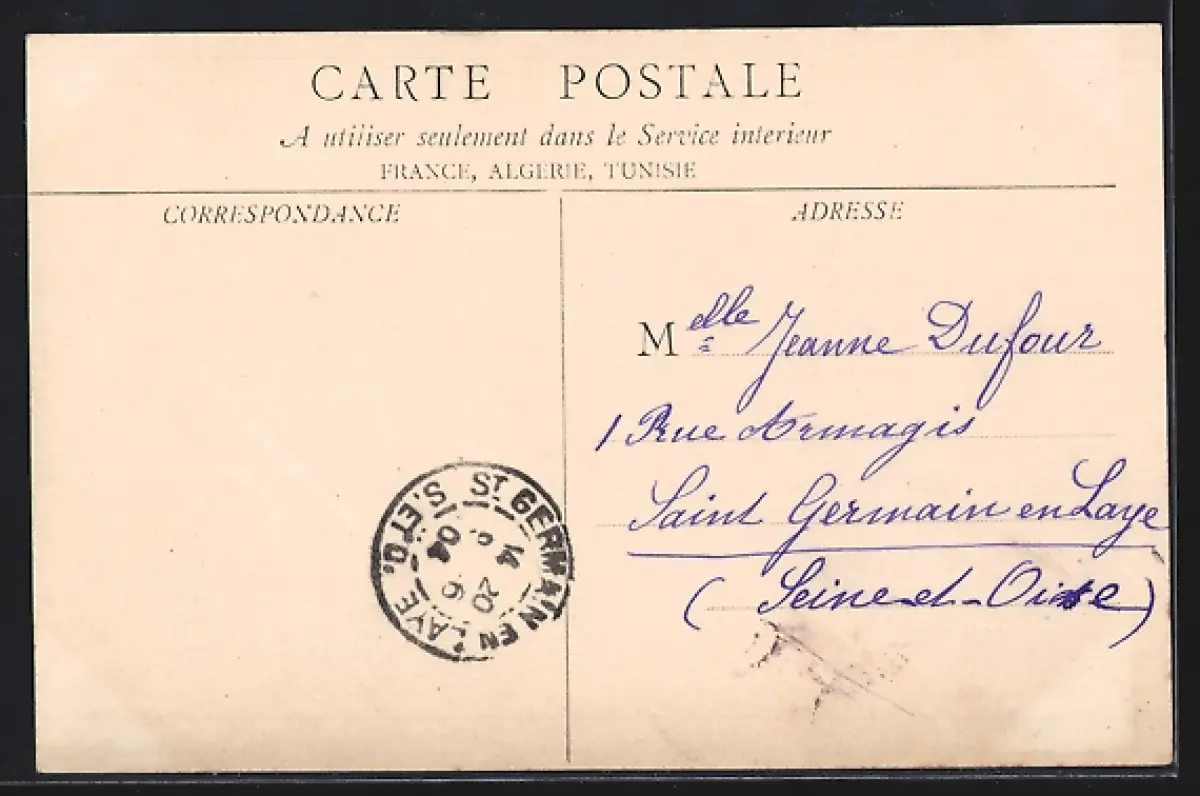 CARTE POSTALE
A utiliser seulement dans le Service interieur
FRANCE, ALGERIE, TUNISIE
CORRESPONDANCE
ADRESSE
Melle Jeanne Dufour
1 Rue Armagis
Saint Germain en Laye
(Seine-et-Oise)
ST GERMAIN EN LAYE
S. ET O.
14
20 6
04